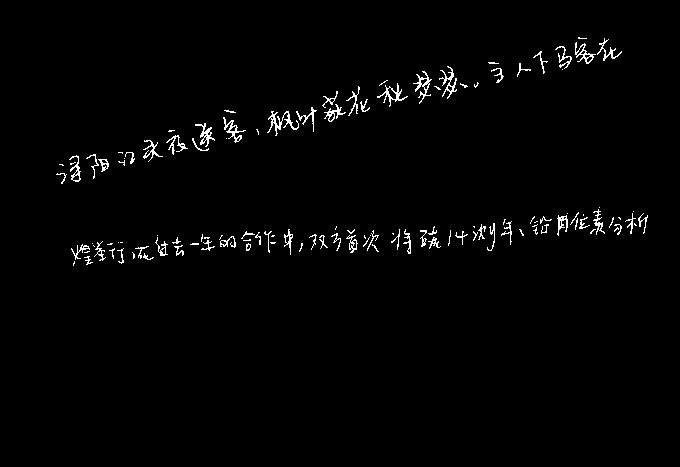 浔阳江头夜送客,枫叶荻花秋瑟瑟。主人下马客在
煌举行,在过去一年的合作中,双方首次将碳14测年、铅同位素分析